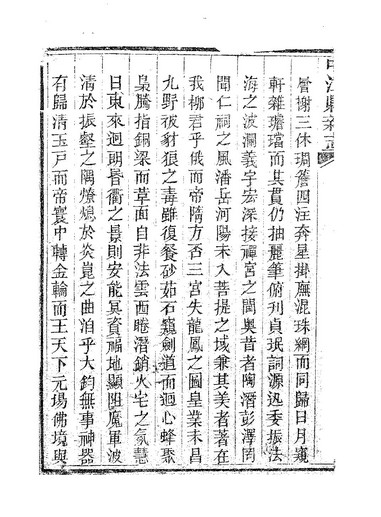 中江縣
層榭三休琱簷四注奔星掛廡混珠網而同歸日月窺
軒雜璫璫而其貫仍抽麗筆俯刋貞珉詞源迅委振法
海之波瀾義宇宏深接禪宮之閫奥昔者陶潛彭澤罔
聞仁祠之風潘岳河陽未入菩提之域兼其美者著在
我柳君乎俄而帝隋方否三宮失龍鳳之圖皇業未昌
九野被豺狼之毒雖復餐砂茹石窺劍道而迴心蜂聚
梟騰指銅梁而革面自非法雲西睠潛銷火宅之氛慧
日東來迴朗昏衢之景則安能冥資福地顯阻魔軍波
清於振壑之隅燎熄於炎崑之曲洎乎大鈞無事神器
有歸清玉戸而帝寰中轉金輪而王天下元場佛境與